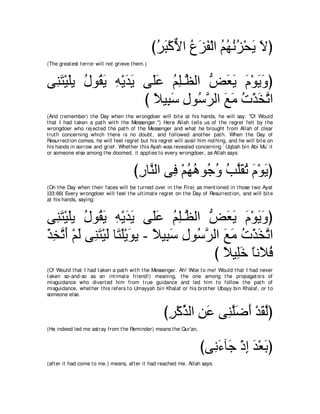 (لَا يَحْزُنُهُمُ الْفَزَعُ الْأَكْبَرُ)
(The greatest terror will not grieve them.)
وَيَوْمَ يَعَضُّ الظَّـلِمُ عَلَى يَدَيْهِ يَقُولُ يلَيْتَنِى
اتَّخَذْتُ مَعَ الرَّسُولِ سَبِيلاً )
(And (remember) the Day when the wrongdoer will bite at his hands, he will say: "O! Would
that I had taken a path with the Messenger.") Here Allah tells us of the regret felt by the
wrongdoer who rejected the path of the Messenger and what he brought from Allah of clear
truth concerning which there is no doubt, and followed another path. When the Day of
Resurrection comes, he will feel regret but his regret will avail him nothing, and he will bite on
his hands in sorrow and grief. Whether this Ayah was revealed concerning `Uqbah bin Abi Mu`it
or someone else among the doomed, it applies to every wrongdoer, as Allah says:
(يَوْمَ تُقَلَّبُ وُجُوهُهُمْ فِى النَّارِ)
(On the Day when their faces will be turned over in the Fire) as mentioned in those two Ayat
)33:66( Every wrongdoer will feel the ultimate regret on the Day of Resurrection, and will bite
at his hands, saying:
وَيَوْمَ يَعَضُّ الظَّـلِمُ عَلَى يَدَيْهِ يَقُولُ يلَيْتَنِى
اتَّخَذْتُ مَعَ الرَّسُولِ سَبِيلاً - يوَيْلَتَا لَيْتَنِى لَمْ أَتَّخِذْ
فُلاَناً خَلِيلاً )
(O! Would that I had taken a path with the Messenger. Ah! Woe to me! Would that I had never
taken so-and-so as an intimate friend!) meaning, the one among the propagators of
misguidance who diverted him from true guidance and led him to follow the path of
misguidance, whether this refers to Umayyah bin Khalaf or his brother Ubayy bin Khalaf, or to
someone else.
(لَّقَدْ أَضَلَّنِى عَنِ الذِّكْرِ)
(He indeed led me astray from the Reminder) means the Qur'an,
(بَعْدَ إِذْ جَآءَنِى)
(after it had come to me.) means, after it had reached me. Allah says: